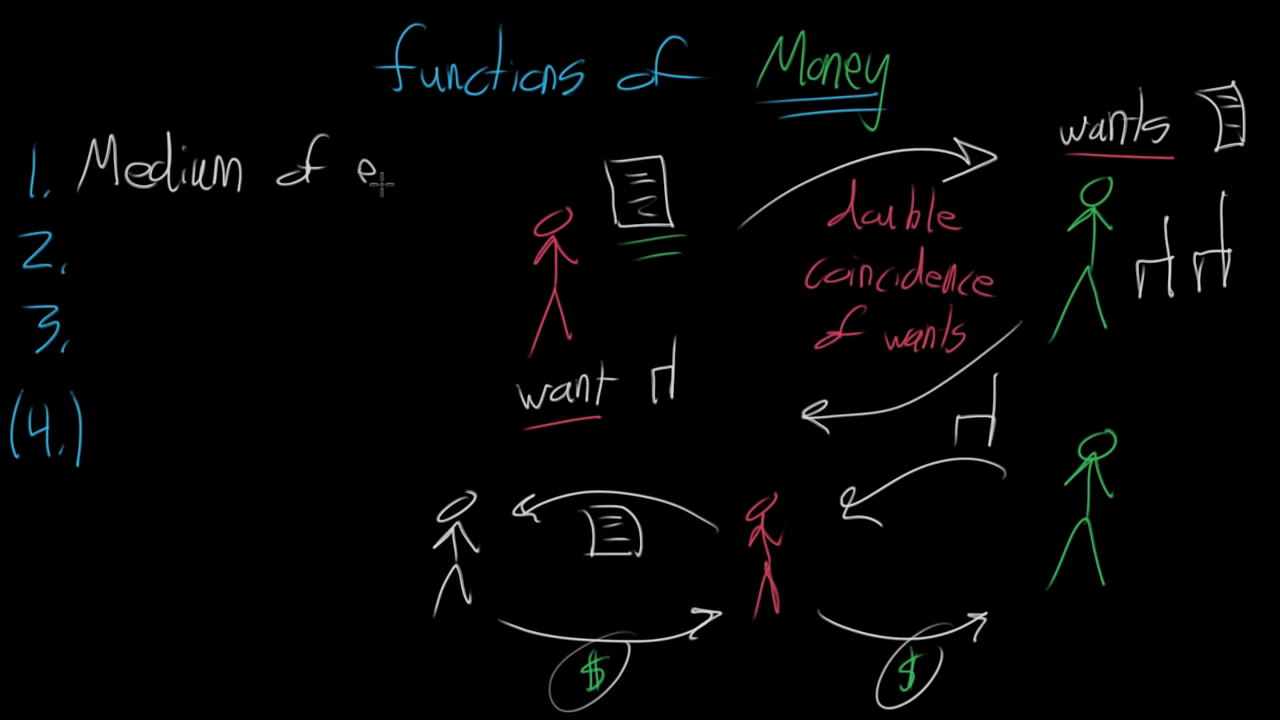 functions of Money
1. Medium of e
2.
3.
(4.)
wants
double
coincidence
of wants
want
$
$